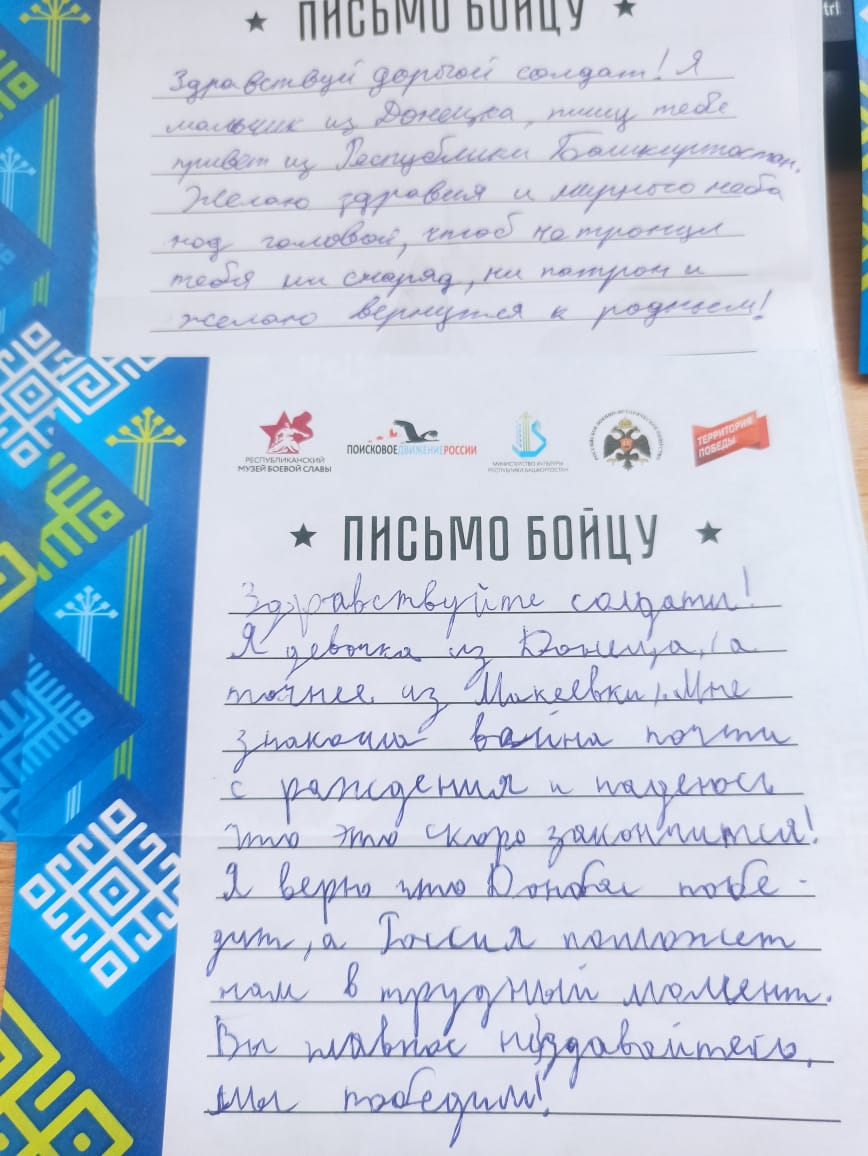 trl
★ ПИСЬМО БОЙЦУ ★
Здравствуй дорогой солдат! Я
мальчик из Донецка, пишу тебе
привет из Республики Башкиртостан.
Желаю здравия и мирного неба
над головой, чтоб не тронул
тебя ни снаряд, ни патрон и
желаю вернутся к родным!
РЕСПУБЛИКАНСКИЙ
МУЗЕЙ БОЕВОЙ СЛАВЫ
ПОИСКОВОЕДВИЖЕНИЕРОССИИ
МИНИСТЕРСТВО КУЛЬТУРЫ
РЕСПУБЛИКИ БАШКОРТОСТАН
РОССИЙСКОЕ ВОЕННО-ИСТОРИЧЕСКОЕ ОБЩЕСТВО
ТЕРРИТОРИЯ
ПОБЕДЫ
★ ПИСЬМО БОЙЦУ ★
Здравствуйте солдаты!
Я девочка из Донецка, (а
точнее из Макеевки). Мне
знакома вайна почти
с раждения и надеюсь
что это скоро закончится!
Я верю что Донбас побе-
дит, а Россия поможет
нам в трудный момент.
Вы главное нездавайтесь,
мы победим!